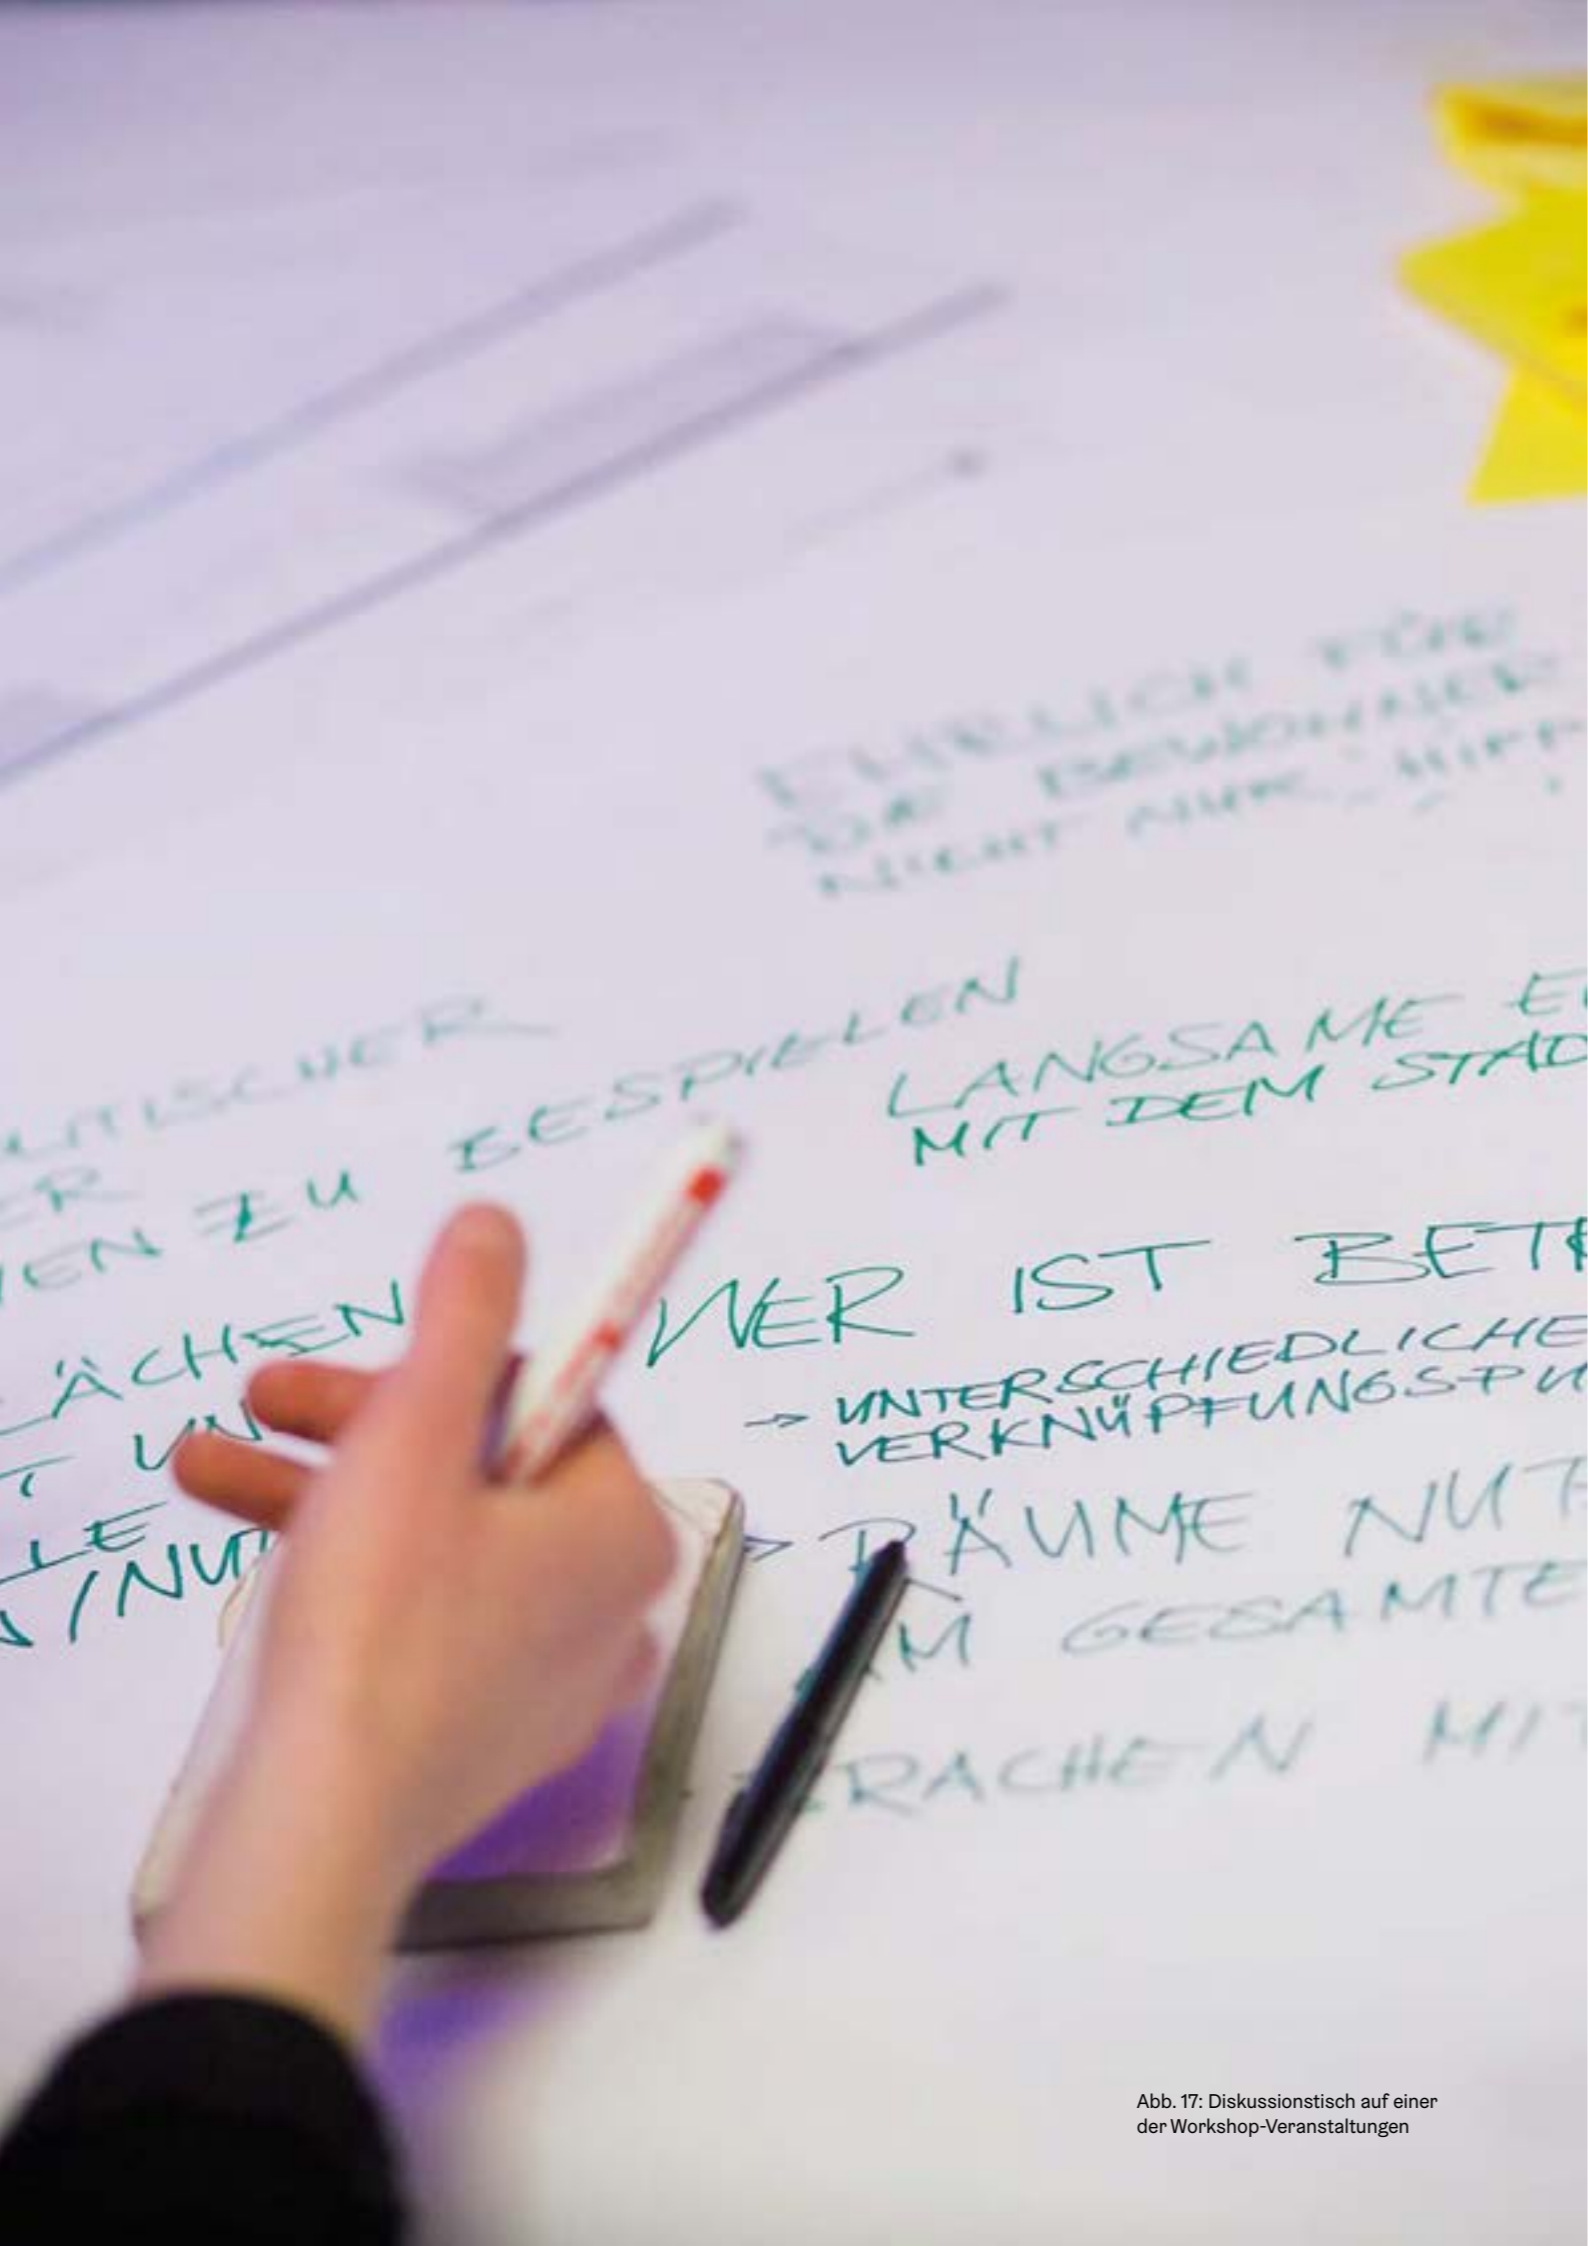 EHRLICH FÜR
DIE BEWOHNER
NICHT NUR
LITISCHER
ER
EN ZU BESPIELEN
LANGSAME E
MIT DEM STAD
ÄCHEN
T UN
LE
/NUT
WER IST BET
→ UNTERSCHIEDLICHE
VERKNÜPFUNGSPU
→ RÄUME NUT
IM GESAMTE
RACHEN MIT
Abb. 17: Diskussionstisch auf einer
der Workshop-Veranstaltungen